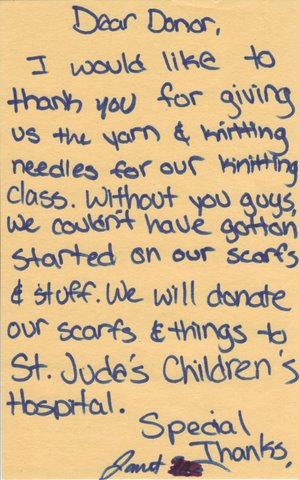 Dear Donor,
I would like to
thank you for giving
us the yarn & knitting
needles for our knitting
class. Without you guys,
we couldn't have gotton
started on our scarfs
& stuff. We will donate
our scarfs & things to
St. Jude's Children's
Hospital.
Special
Thanks,
Janet